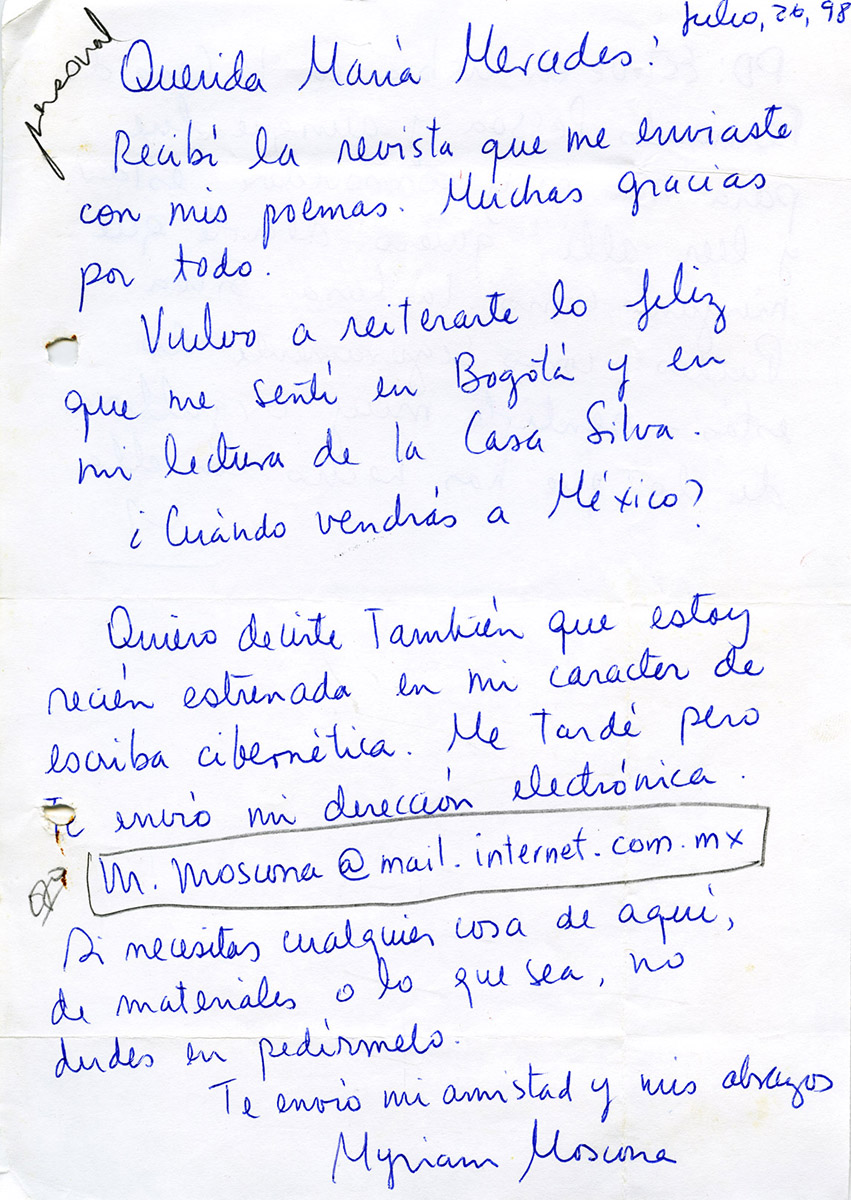 Julio, 26, 98
personal
Querida María Mercedes:
Recibí la revista que me enviaste
con mis poemas. Muchas gracias
por todo.
Vuelvo a reiterarte lo feliz
que me sentí en Bogotá y en
mi lectura de la Casa Silva.
¿Cuándo vendrás a México?
Quiero decirte También que estoy
recién estrenada en mi caracter de
escriba cibernética. Me tardé pero
te envío mi dirección electrónica.
M. Moscona@mail.internet.com.mx
Si necesitas cualquier cosa de aquí,
de materiales o lo que sea, no
dudes en pedírmelo.
Te envío mi amistad y mis abrazos
Myriam Moscona